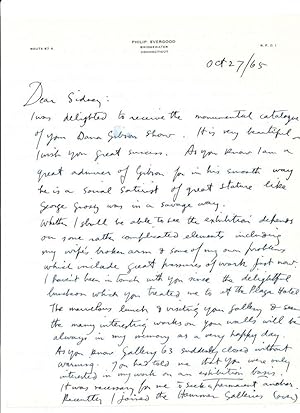 PHILIP EVERGOOD
ROUTE 67 A
BRIDGEWATER
CONNECTICUT
R.F.D. 1
Oct 27/65
Dear Sidney:
I was delighted to receive the monumental catalogue
of your Dana Gibson Show. It is very beautiful –
I wish you great success. As you know I am a
great admirer of Gibson for in his smooth way
he is a social satirist of great stature like
George Grosz was in a savage way.
Whether I shall be able to see the exhibition depends
on some rather complicated elements including
my wife's broken arm & some of my own problems
which include great pressures of work just now.
I haven't been in touch with you since the delightful
luncheon which you treated me to at the Plaza Hotel
The marvelous lunch & visiting your Gallery & seeing
the many interesting works on your walls will be
always in my memory as a very happy day.
As you know Gallery 63 suddenly closed without
warning. You had told me that you were only
interested in my work on an exhibition basis.
It was necessary for me to seek a permanent another.
Recently I joined the Hammer Galleries (over)